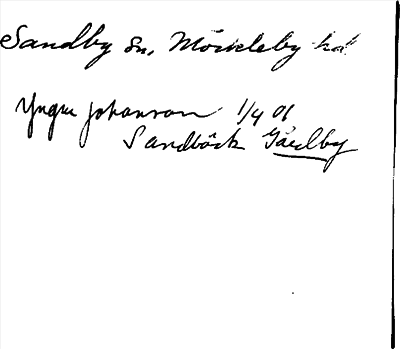 Sandby sn, Möckleby hd
Yngve Johanson 1/4 01
Sandbäck Gårdby